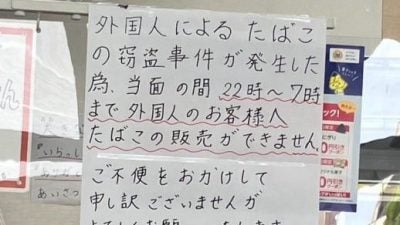 外国人によるたばこ
の窃盗事件が発生した
為、当面の間22時〜7時
まで外国人のお客様へ
たばこの販売ができません。
ご不便をおかけして
申し訳ございませんが